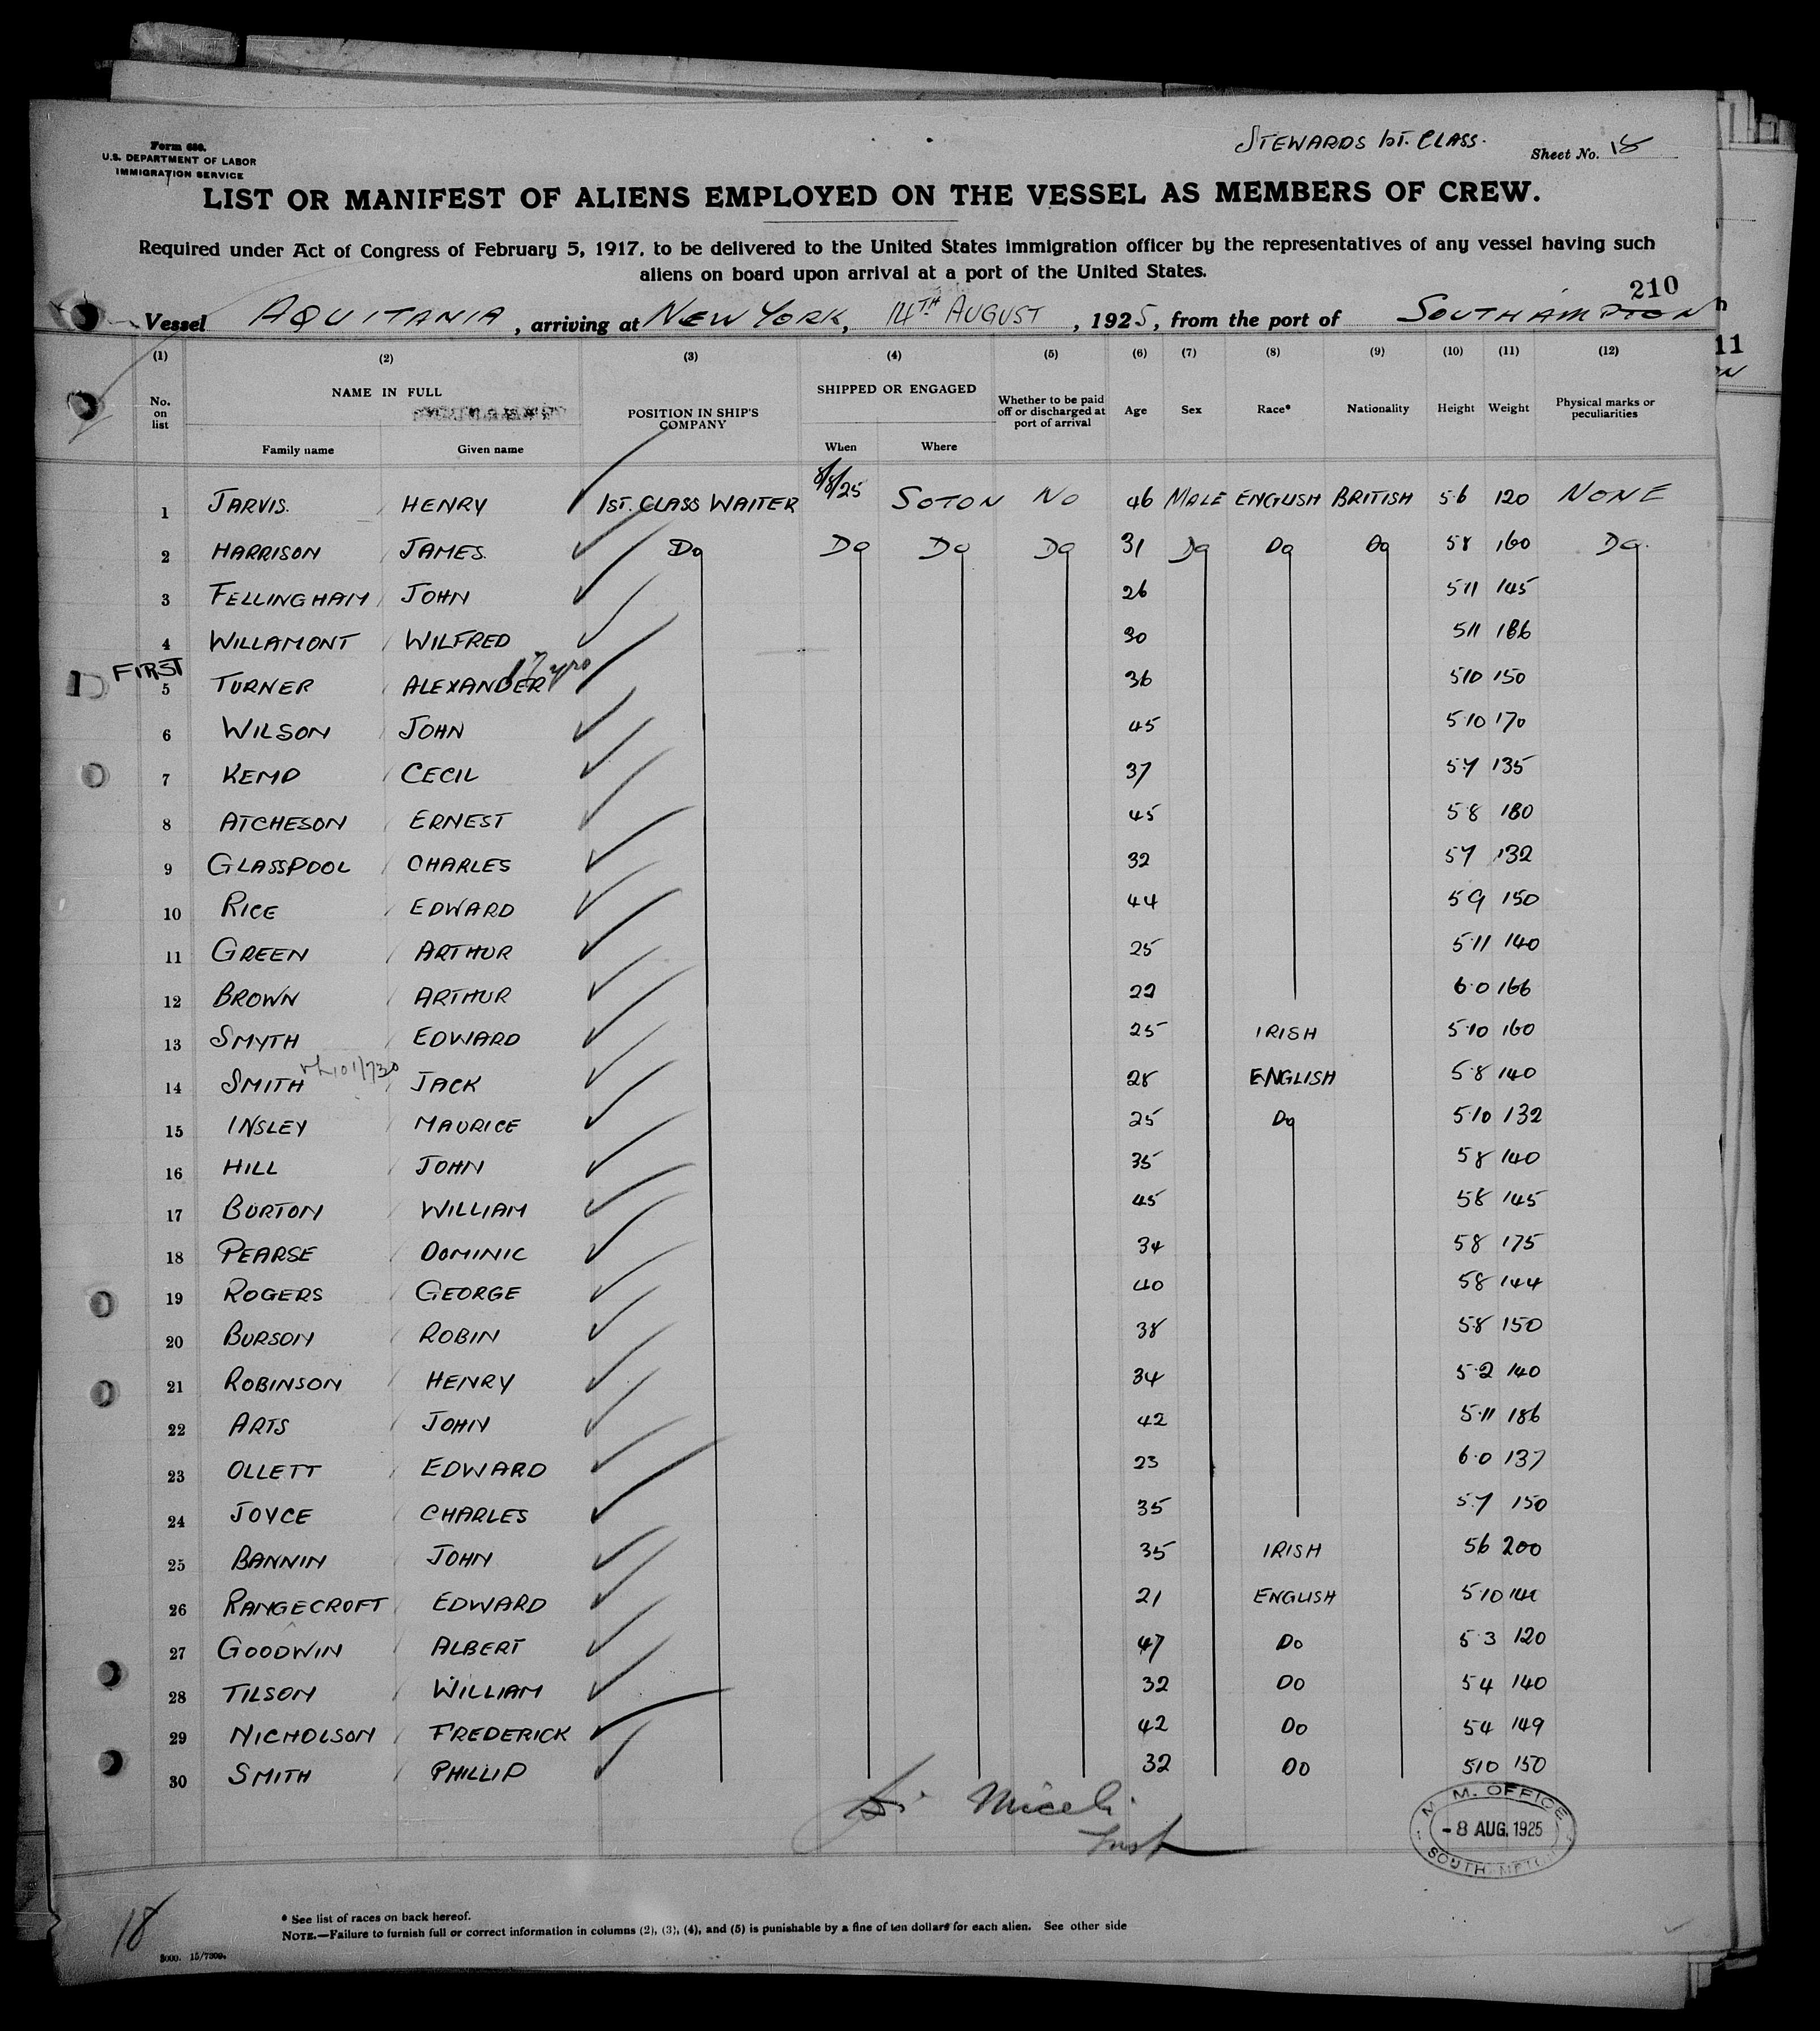 STEWARDS 1ST. CLASS.
Form 680.
U.S. DEPARTMENT OF LABOR
IMMIGRATION SERVICE
Sheet No. 18
LIST OR MANIFEST OF ALIENS EMPLOYED ON THE VESSEL AS MEMBERS OF CREW.
Required under Act of Congress of February 5, 1917, to be delivered to the United States immigration officer by the representatives of any vessel having such
aliens on board upon arrival at a port of the United States.
210
Vessel AQUITANIA, arriving at NEW YORK, 14TH AUGUST, 1925, from the port of SOUTHAMPTON
11
(1) (2) (3) (4) (5) (6) (7) (8) (9) (10) (11) (12)
No. on list NAME IN FULL POSITION IN SHIP'S COMPANY SHIPPED OR ENGAGED Whether to be paid off or discharged at port of arrival Age Sex Race* Nationality Height Weight Physical marks or peculiarities
Family name Given name When Where
1 JARVIS. HENRY 1ST. CLASS WAITER 8/8/25 SOTON NO 46 MALE ENGLISH BRITISH 5·6 120 NONE
2 HARRISON JAMES. Do Do Do Do 31 Do Do Do 5 8 160 Do.
3 FELLINGHAM JOHN 26 5 11 145
4 WILLAMONT WILFRED 30 5 11 186
FIRST
17 yrs
5 TURNER ALEXANDER 36 5 10 150
6 WILSON JOHN 45 5·10 170
7 KEMP CECIL 37 5·7 135
8 ATCHESON ERNEST 45 5 8 180
9 GLASSPOOL CHARLES 32 5 7 132
10 RICE EDWARD 44 5 9 150
11 GREEN ARTHUR 25 5·11 140
12 BROWN ARTHUR 22 6·0 166
13 SMYTH EDWARD 25 IRISH 5·10 160
14 SMITH JACK 28 ENGLISH 5·8 140
15 INSLEY MAURICE 25 Do 5·10 132
16 HILL JOHN 35 5 8 140
17 BURTON WILLIAM 45 5 8 145
18 PEARSE DOMINIC 34 5 8 175
19 ROGERS GEORGE 40 5 8 144
20 BURSON ROBIN 38 5·8 150
21 ROBINSON HENRY 34 5·2 140
22 ARTS JOHN 42 5·11 186
23 OLLETT EDWARD 23 6·0 137
24 JOYCE CHARLES 35 5·7 150
25 BANNIN JOHN 35 IRISH 5 6 200
26 RANGECROFT EDWARD 21 ENGLISH 5·10 144
27 GOODWIN ALBERT 47 Do 5 3 120
28 TILSON WILLIAM 32 Do 5 4 140
29 NICHOLSON FREDERICK 42 Do 5 4 149
30 SMITH PHILLIP 32 Do 5 10 150
Di Miceli
Insp
M. M. OFFICE
- 8 AUG. 1925
SOUTHAMPTON
18
* See list of races on back hereof.
NOTE.—Failure to furnish full or correct information in columns (2), (3), (4), and (5) is punishable by a fine of ten dollars for each alien. See other side
5000. 15/7399.